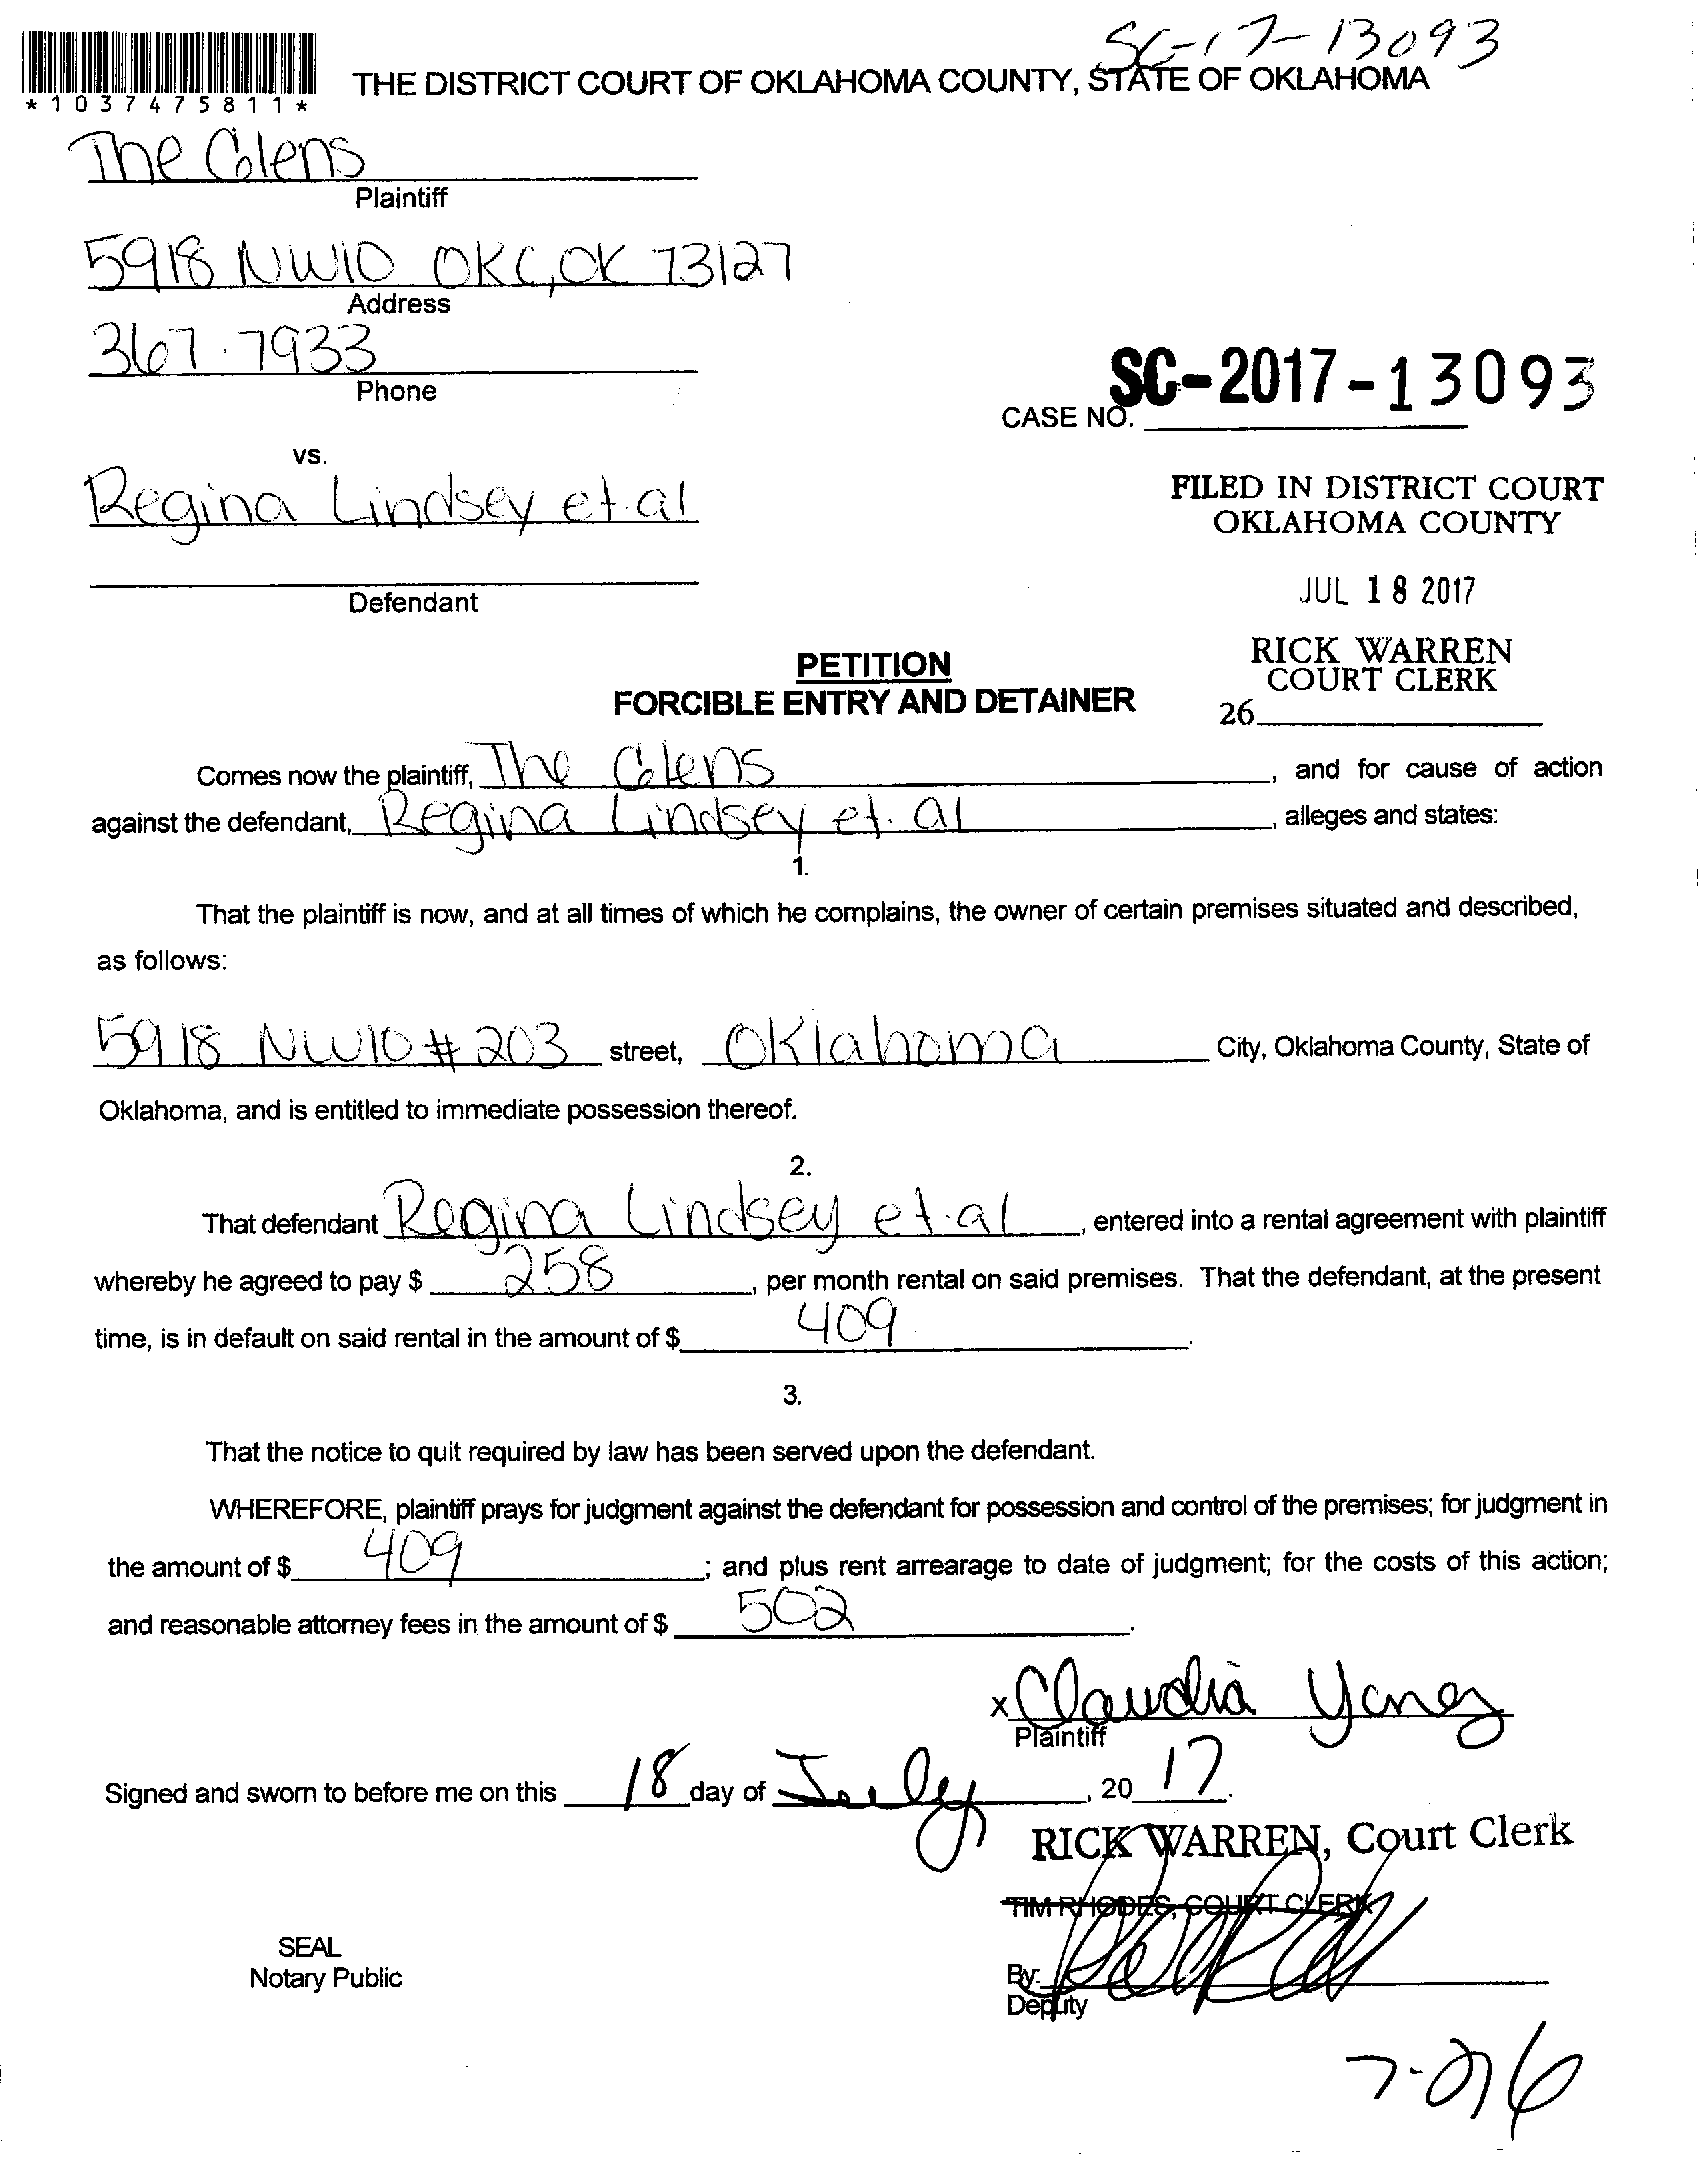 SC-17-13093
*1037475811*
THE DISTRICT COURT OF OKLAHOMA COUNTY, STATE OF OKLAHOMA
The Glens
Plaintiff
5918 NW10 OKC, OK 73127
Address
367.7933
Phone
SC-2017-13093
CASE NO.
vs.
Regina Lindsey et.al
Defendant
FILED IN DISTRICT COURT
OKLAHOMA COUNTY
JUL 18 2017
RICK WARREN
COURT CLERK
26
PETITION
FORCIBLE ENTRY AND DETAINER
Comes now the plaintiff, The Glens, and for cause of action
against the defendant, Regina Lindsey et. al, alleges and states:
1.
That the plaintiff is now, and at all times of which he complains, the owner of certain premises situated and described,
as follows:
5918 NW10 # 203 street, Oklahoma City, Oklahoma County, State of
Oklahoma, and is entitled to immediate possession thereof.
2.
That defendant Regina Lindsey et.al, entered into a rental agreement with plaintiff
whereby he agreed to pay $ 258, per month rental on said premises. That the defendant, at the present
time, is in default on said rental in the amount of $ 409.
3.
That the notice to quit required by law has been served upon the defendant.
WHEREFORE, plaintiff prays for judgment against the defendant for possession and control of the premises; for judgment in
the amount of $ 409; and plus rent arrearage to date of judgment; for the costs of this action;
and reasonable attorney fees in the amount of $ 502.
x Claudia Yanez
Plaintiff
Signed and sworn to before me on this 18 day of July, 20 17.
RICK WARREN, Court Clerk
TIM RHODES, COURT CLERK
SEAL
Notary Public
By:
Deputy
7-26